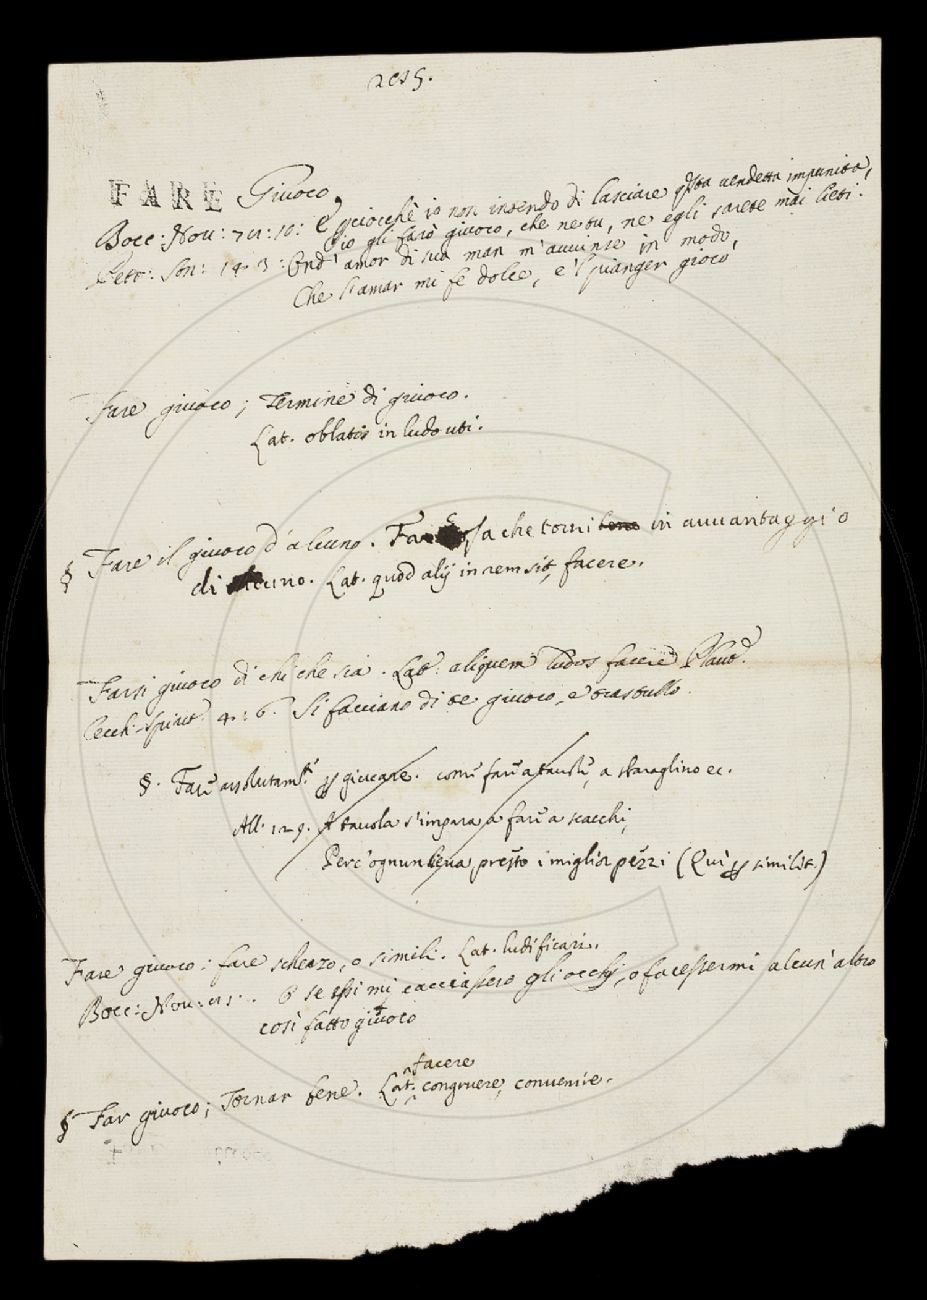 FARE Giuoco,
Bocc: Nov: 72: 10: E perciocchè io non intendo di lasciare qsta vendetta impunita,
io gli farò giuoco, che ne tu, ne egli sarete mai lieti.
Petr: Son: 143: Ond' amor di sua man m' avvinse in modo,
Che l'amar mi fe dolce, e 'l pianger gioco
Fare giuoco; Termine di giuoco.
Lat. oblatis in ludo uti.
§ Fare il giuoco d'alcuno. Far cosa che torni in avvantaggio
di alcuno. Lat. quod alij in rem sit, facere.
Farsi giuoco di chi che sia. Lat. aliquem ludos facere Plaut.
Cecch. Spirit. 4: 6. Si facciano di te giuoco, e trastullo.
§. Fare assolutamte p giucare. come fare a tavole, a sbaraglino ec.
All. 129. A tavola s'impara a fare a scacchi,
Perc' ognun leva presto i miglior pezzi (Qui p similit.)
Fare giuoco: fare scherzo, o simili. Lat. ludificari.
Bocc: Nov: O se essi mi cacciassero gli occhj, o facessermi alcun' altro
così fatto giuoco
facere
§ Far giuoco; Tornar bene. Lat. congruere, convenire.